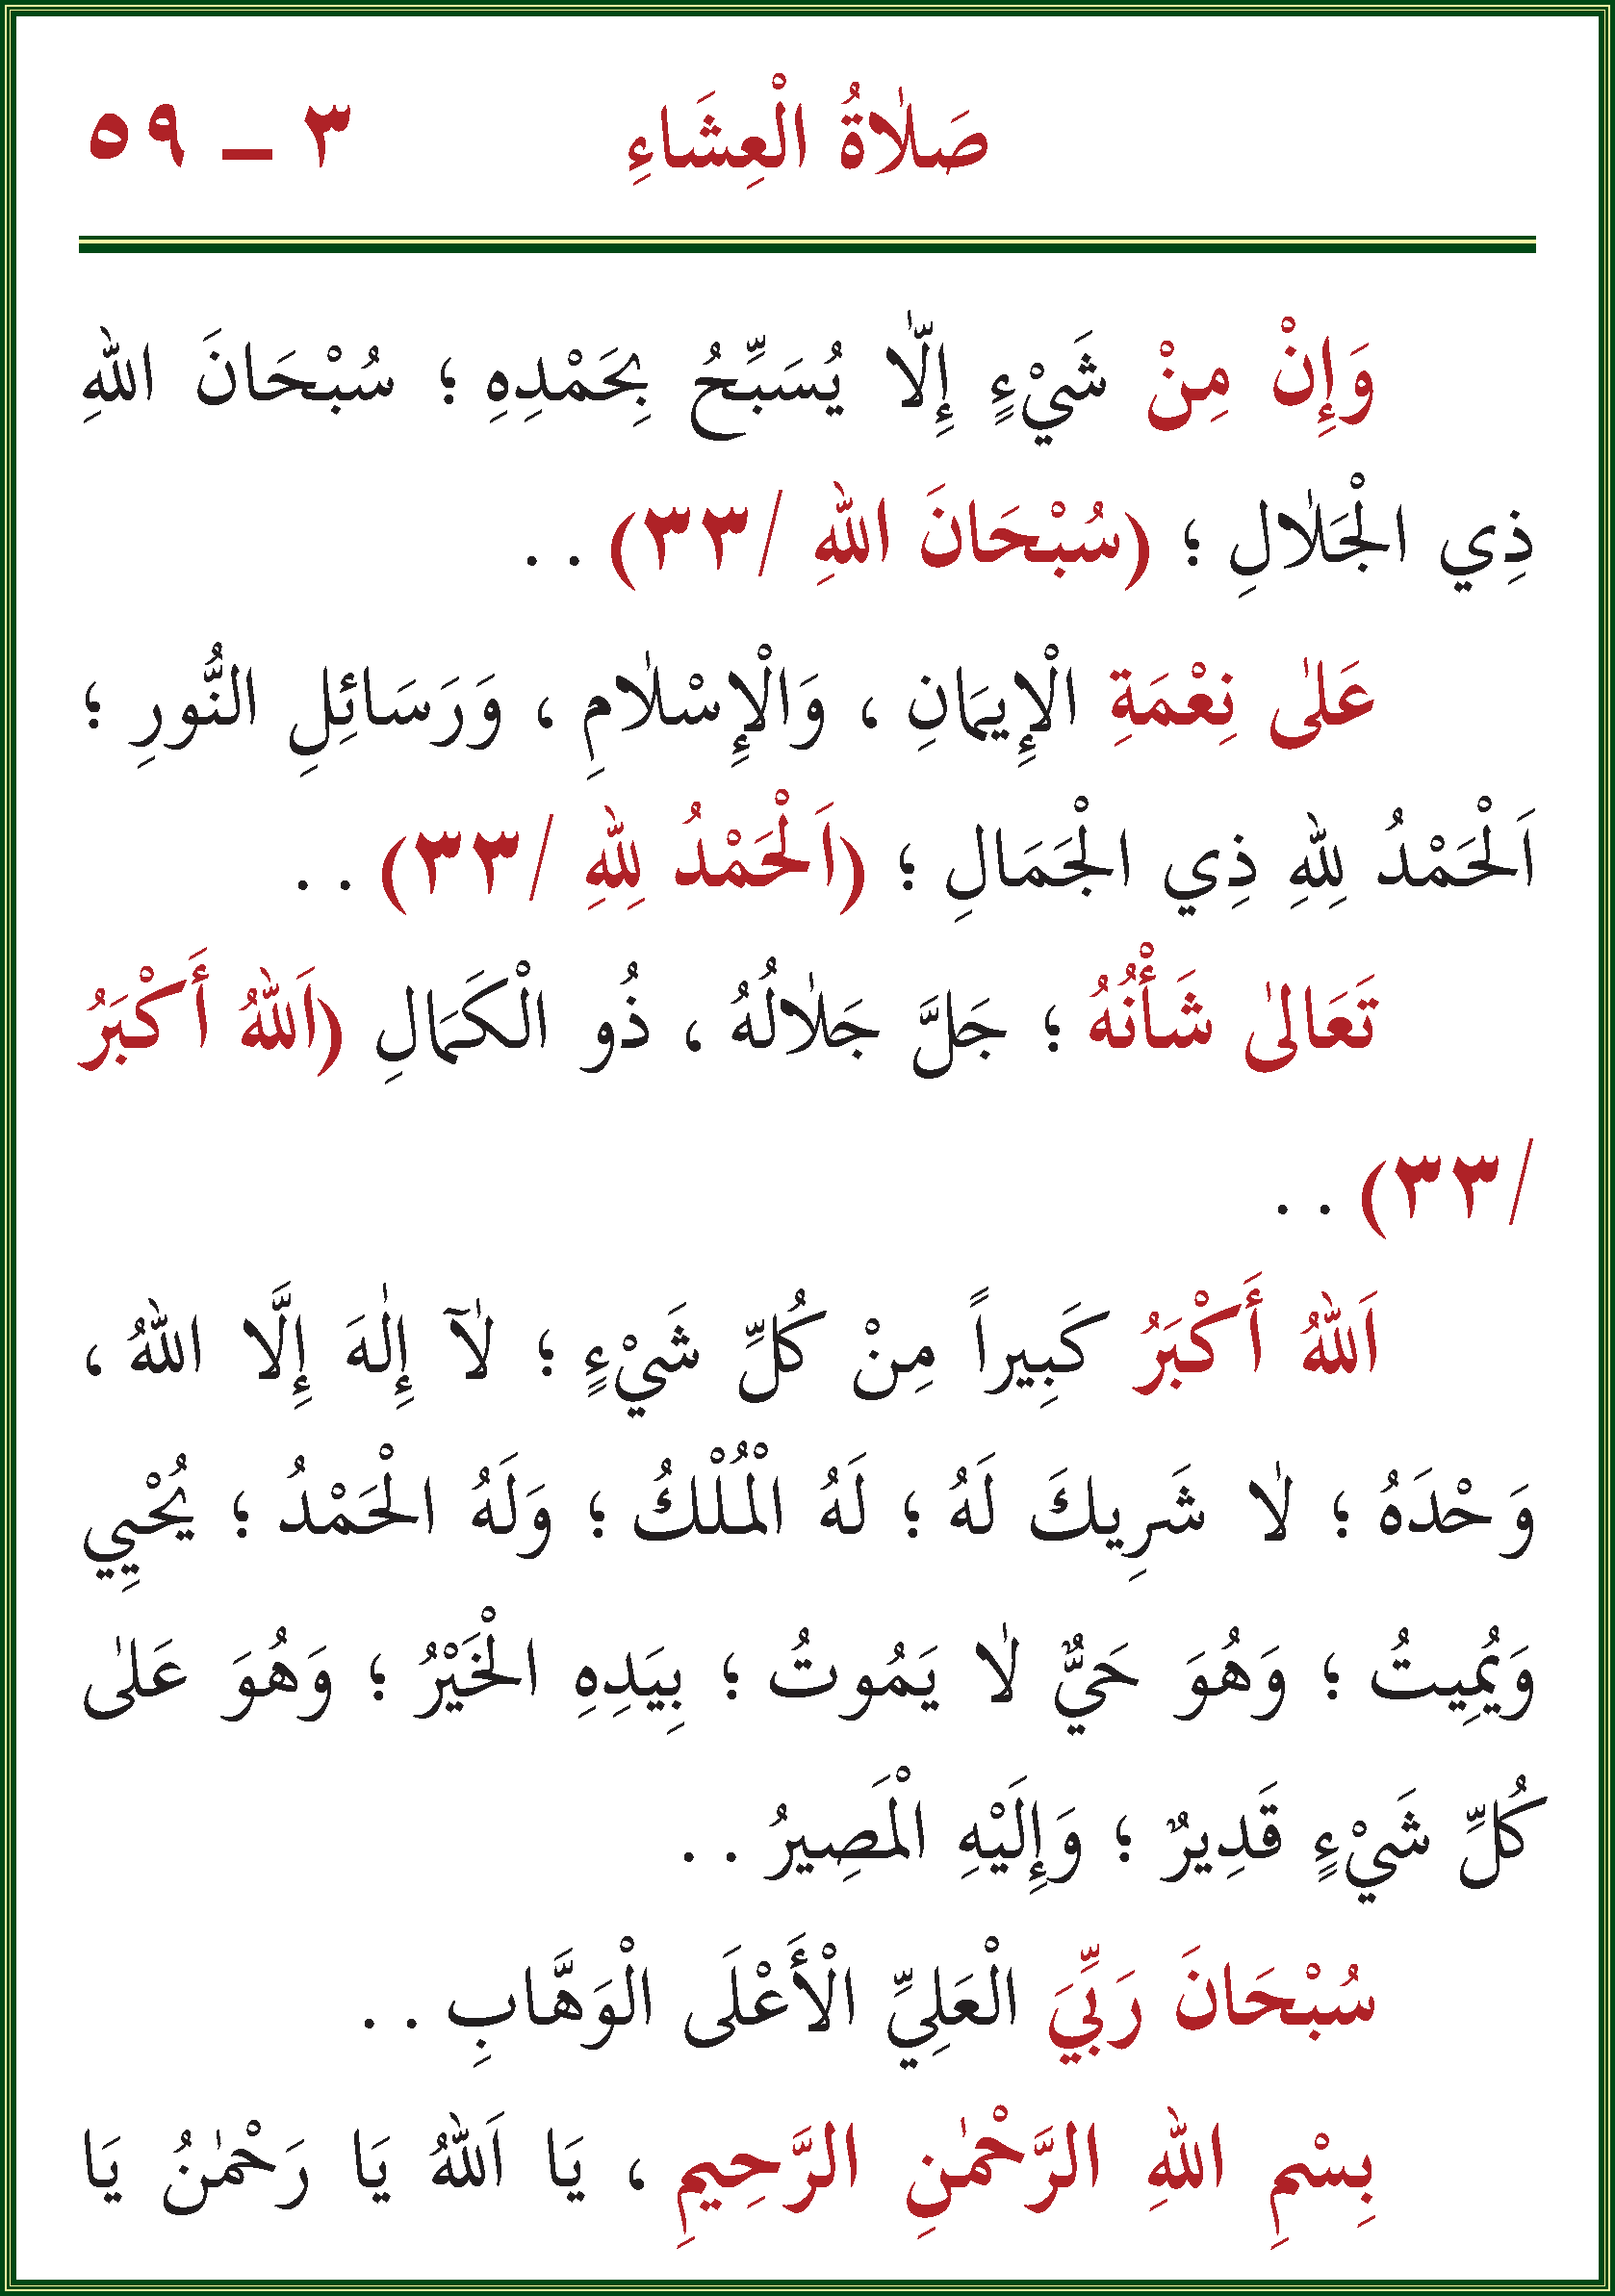 صَلٰاةُ الْعِشَاءِ ٣ ـ ٥٩
وَإِنْ مِنْ شَيْءٍ إِلّٰا يُسَبِّحُ بِحَمْدِهِ ؛ سُبْحَانَ اللهِ
ذِي الْجَلٰالِ ؛ (سُبْحَانَ اللهِ /٣٣) . .
عَلٰى نِعْمَةِ الْإِيمَانِ ، وَالْإِسْلٰامِ ، وَرَسَائِلِ النُّورِ ؛
اَلْحَمْدُ لِلهِ ذِي الْجَمَالِ ؛ (اَلْحَمْدُ لِلهِ /٣٣) . .
تَعَالىٰ شَأْنُهُ ؛ جَلَّ جَلٰالُهُ ، ذُو الْكَمَالِ (اَللهُ أَكْبَرُ
/٣٣) . .
اَللهُ أَكْبَرُ كَبِيراً مِنْ كُلِّ شَيْءٍ ؛ لٰآ إِلٰهَ إِلَّا اللهُ ،
وَحْدَهُ ؛ لٰا شَرِيكَ لَهُ ؛ لَهُ الْمُلْكُ ؛ وَلَهُ الْحَمْدُ ؛ يُحْيِي
وَيُمِيتُ ؛ وَهُوَ حَيٌّ لٰا يَمُوتُ ؛ بِيَدِهِ الْخَيْرُ ؛ وَهُوَ عَلٰى
كُلِّ شَيْءٍ قَدِيرٌ ؛ وَإِلَيْهِ الْمَصِيرُ . .
سُبْحَانَ رَبِّيَ الْعَلِيِّ الْأَعْلَى الْوَهَّابِ . .
بِسْمِ اللهِ الرَّحْمٰنِ الرَّحِيمِ ، يَا اَللهُ يَا رَحْمٰنُ يَا